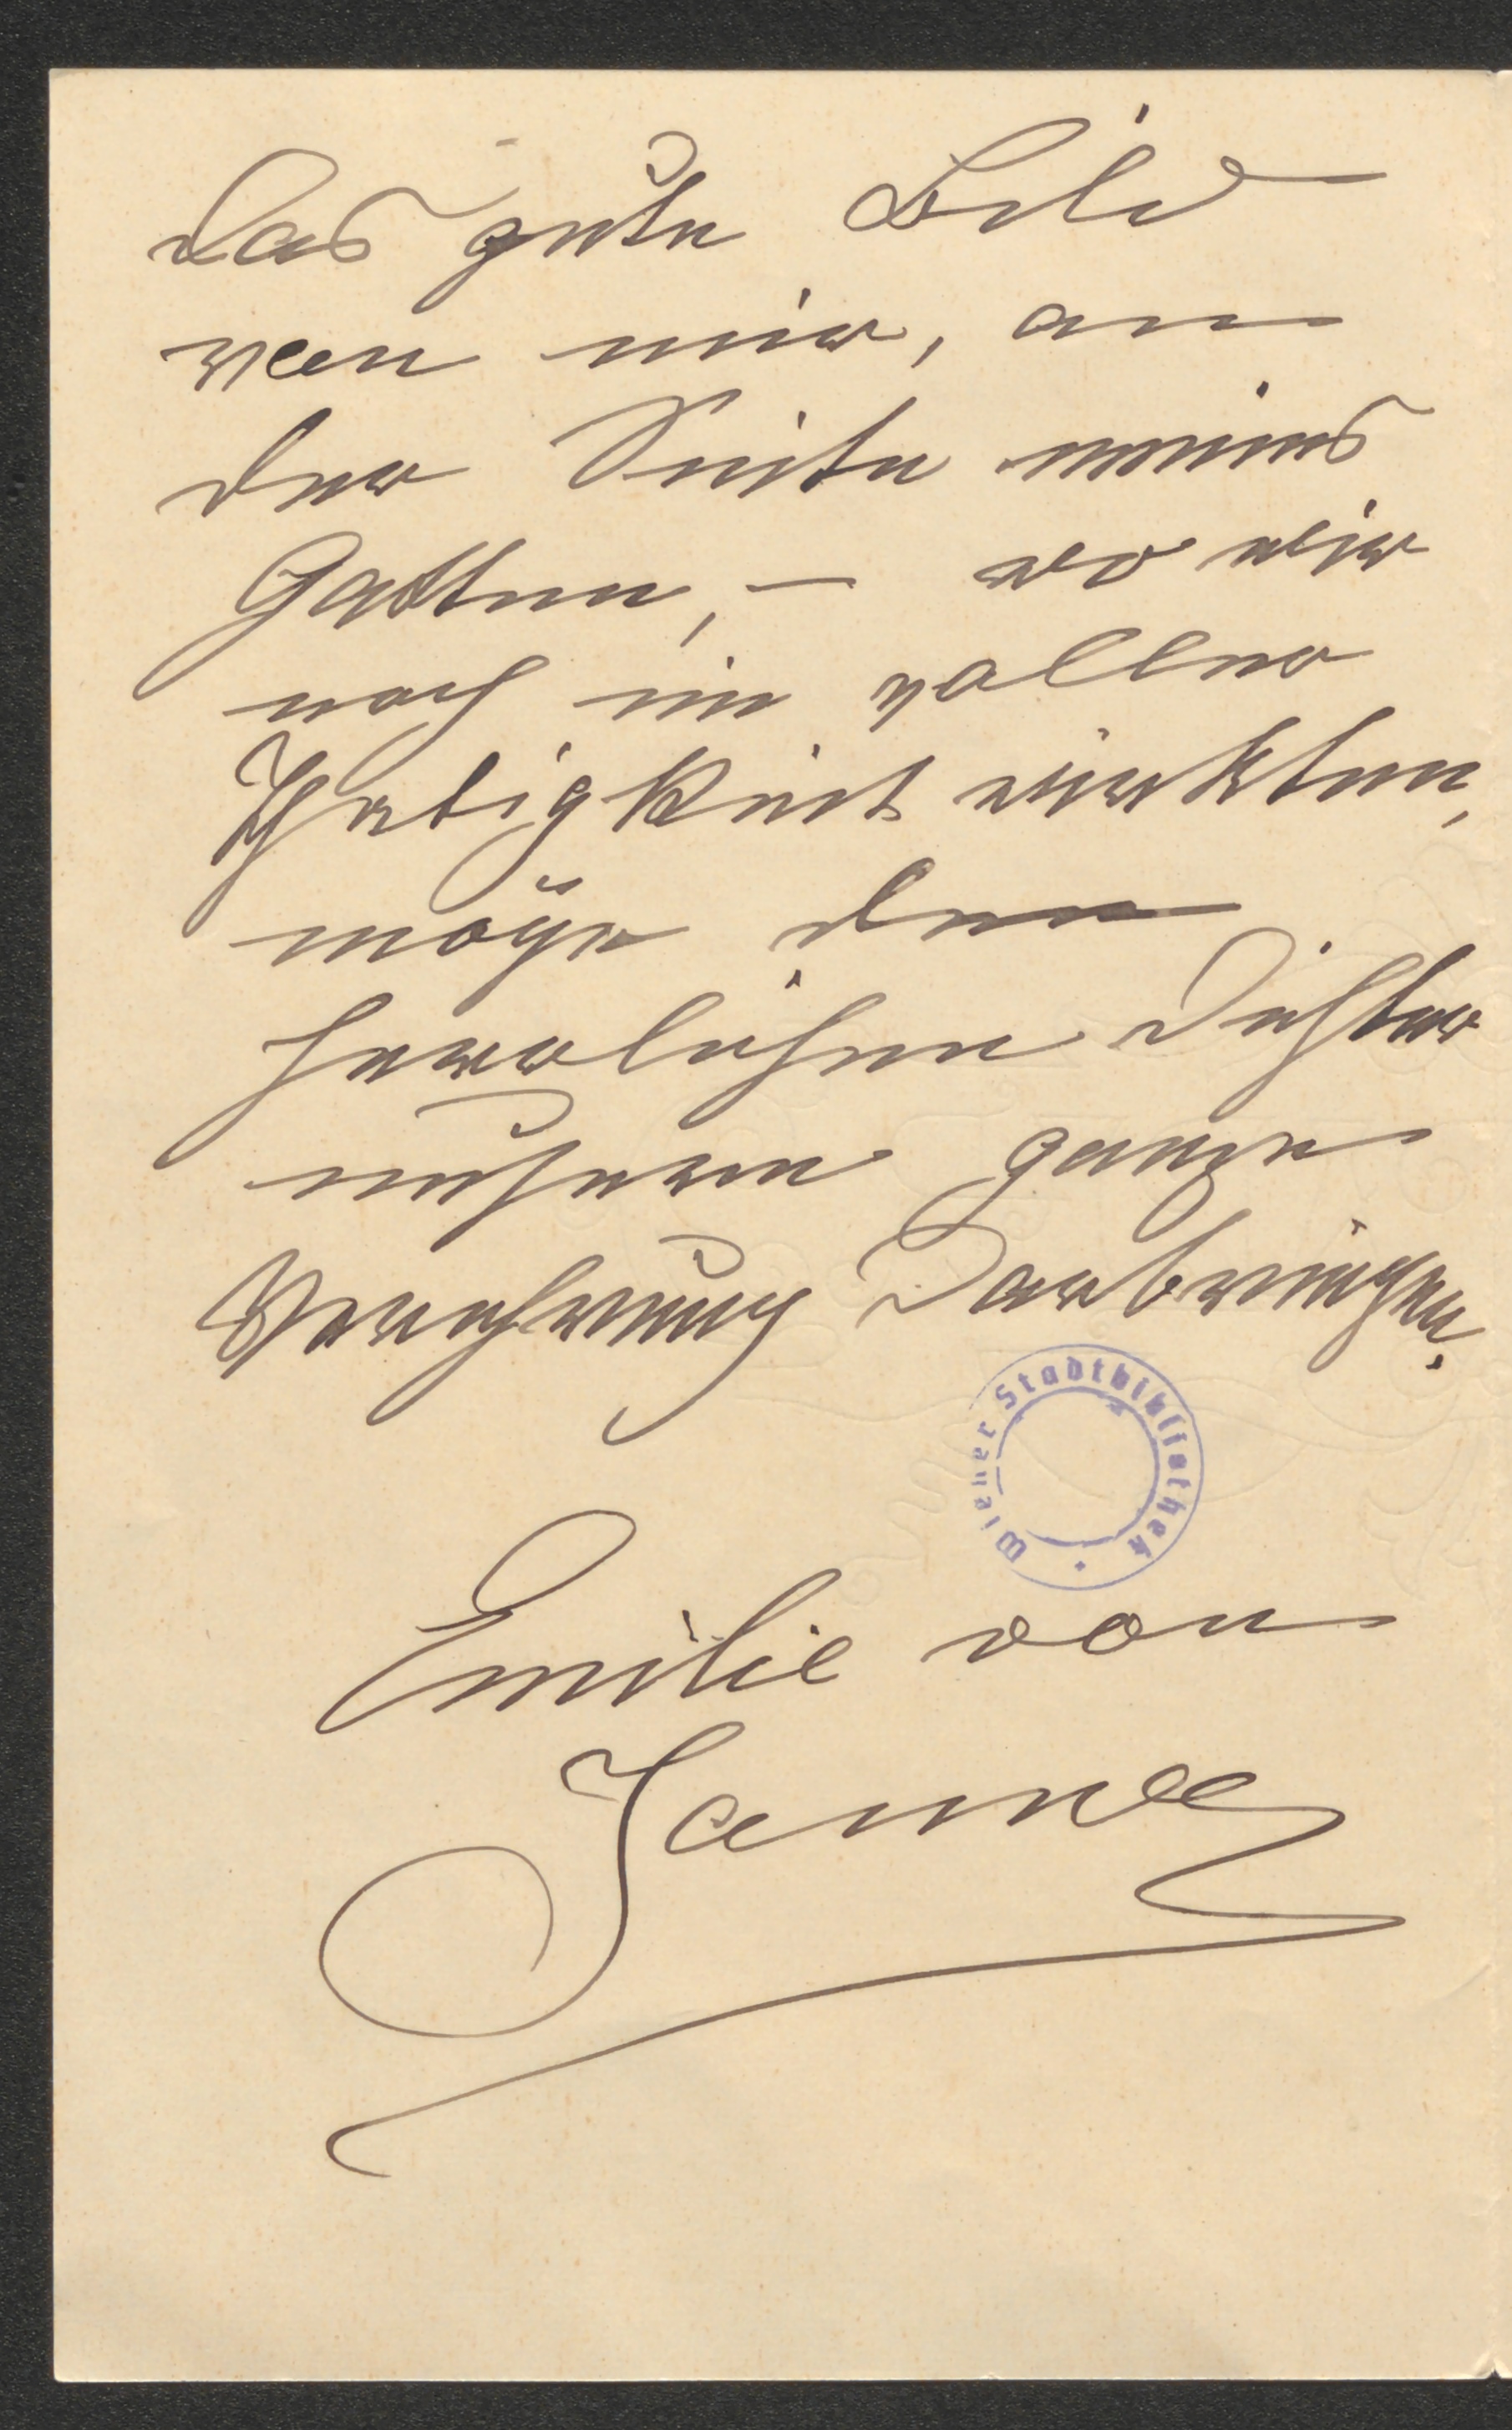 Das gute Bild
von mir, an
der Seite meines
Gatten, – wo wir
noch in voller
Thatigkeit wirkten,
möge dem
herrlichen Dichter
unsere ganze
Verehrung darbringen.
Wiener Stadtbibliothek
Emilie von